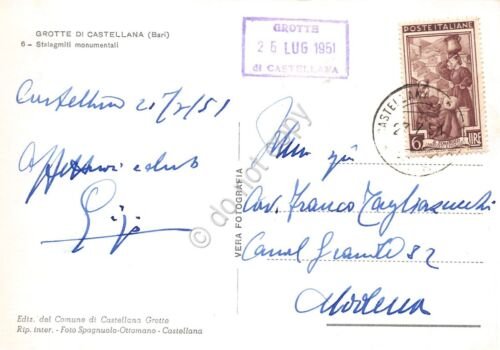 GROTTE DI CASTELLANA (Bari)
6 - Stalagmiti monumentali
GROTTE
25 LUG 1951
di CASTELLANA
POSTE ITALIANE
6 LIRE
CASTELLANA
Castellana 25/7/51
Affettuosi saluti
Gigi
Cav. Franco Tagliazucchi
Canal Grande 82
Modena
VERA FOTOGRAFIA
do not copy
Ediz. del Comune di Castellana Grotte
Rip. inter. - Foto Spagnuolo-Ottomano - Castellana